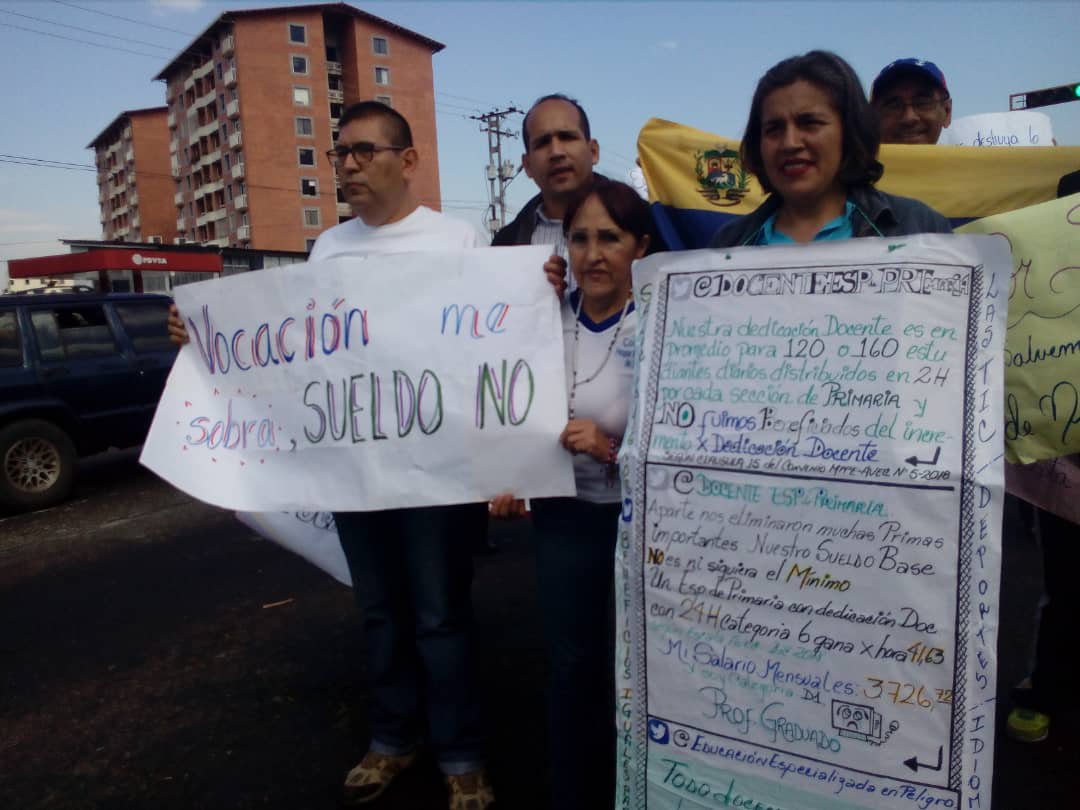 PDVSA
Vocación me
sobra, SUELDO NO
@DOCENTE ESP. PRIMARIA
Nuestra dedicación Docente es en
promedio para 120 o 160 estu
diantes diarios distribuidos en 2H
por cada sección de PRIMARIA y
NO fuimos Beneficiados del incre-
mento x Dedicación Docente
SEGÚN CLAUSULA 15 del CONVENIO MPPE-AVEC N° 5-2018
@DOCENTE ESP. de PRIMARIA.
Aparte nos eliminaron muchas Primas
importantes Nuestro SUELDO Base
NO es ni siquiera el Mínimo
Un Esp de Primaria con dedicación Doc
con 24H categoria 6 gana x hora 41,63
Mi Salario Mensuales: 3726,72
Soy Categoria D1
PROF. GRADUADO
@EDUCACIÓN Especializada en Peligro
TODO docen
LAS TIC
DEPORTES
IDIOM
BENEFICIOS IGUALES
destruya b
Salvem
de